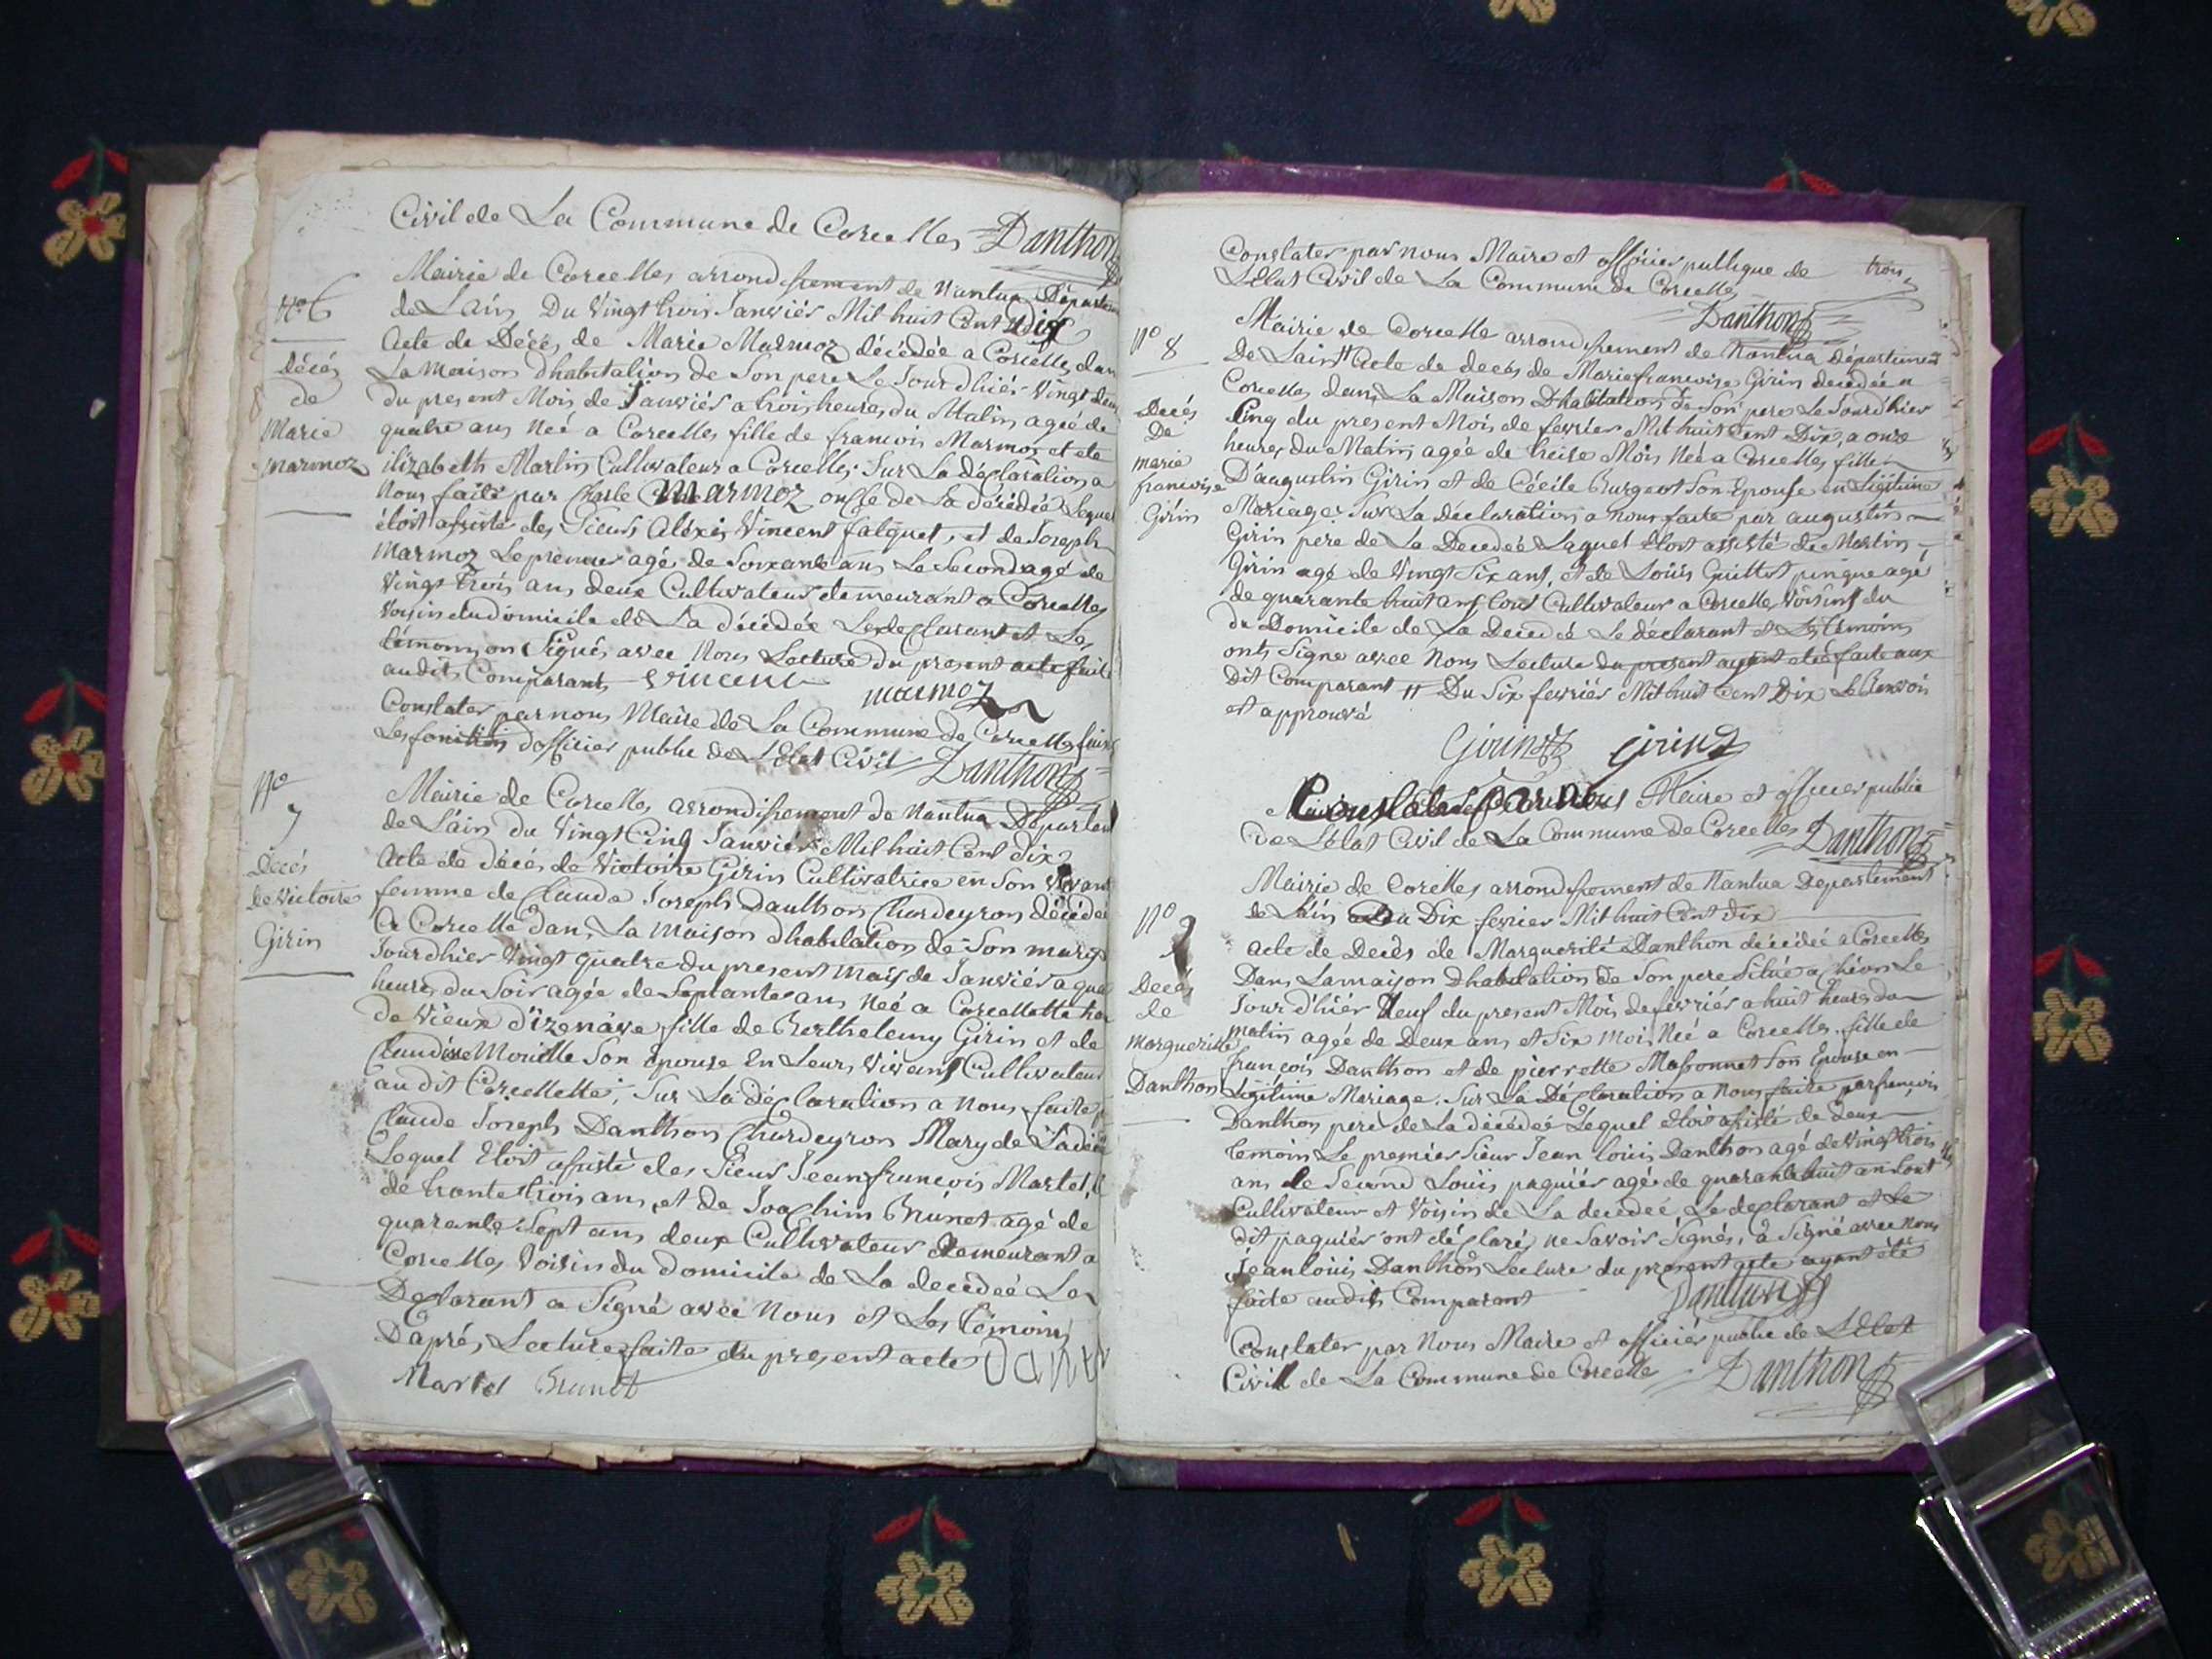 Civil de La Commune de Corcelles Danthon
Mairie de Corcelles arrondissement de Nantua Départem
de Lain Du Vingt trois Janviés Mil huit Cent Dix
N.o 6
Décés
de
Marie
marmoz
Acte de Décés de Marie Marmoz décédée a Corcelles dans
La Maison dhabitation de Son pere Le Jour dhiér Vingt deux
du present Mois de Janviés a trois heures du Matin agée de
quatre ans Neé a Corcelles fille de francois Marmoz et de
Elizabeth Martin Cultivateur a Corcelles Sur La déclaration a
Nous faite par Charle Marmoz oncle de La décédée Lequel
étoit assisté des Sieurs Aléxis Vincent falquet, et de Joseph
Marmoz Le premier agé de Soixante ans Le Second agé de
Vingt trois ans deux Cultivateurs demeurant a Corcelles
Voisin du domicile de La décédée Le declarant et Les
témoins on Signés avec Nous Lecture du present acte faite
audits Comparants Vincent marmoz
Constater par nous Maire de La Commune de Corcelles faisant
Les fonctions dofficier public de LEtat Civil Danthon
N.o
7
Décés
de Victoire
Girin
Mairie de Corcelles arrondissement de Nantua Départem
de Lain du Vingt Cinq Janviés Mil huit Cent dix
Acte de décés de Victoire Girin Cultivatrice en Son Vivant
femme de Claude Joseph Danthon Chardeyron décédée
a Corcelle dans La maison dhabitation de Son mary
Jour dhier Vingt quatre du present mois de Janviés a quat
heures du Soir agée de Septante ans Neé a Corcellette
de Vieux d'izenave fille de Berthelemy Girin et de
Claudine Mouille Son épouse en Leurs Vivant Cultivateur
audit Corcellette; Sur La déclaration a nous faite
Claude Joseph Danthon Chardeyron Mary de La déc
Lequel Etoit assisté des Sieur Jean francois Martel,
de trente trois ans et de Joachim Brunet agé de
quarante Sept ans deux Cultivateurs demeurant a
Corcelles Voisin du domicile de La decédeé Le
Declarant a Signé avec Nous et Les témoins
Daprés Lecture faite du present acte Dant
Martel Brunet
Constater par nous Maire et officier publique de trois
LEtat Civil de La Commune de Corcelles
Danthon
N.o 8
Decés
De
marie
francoise
Girin
Mairie de Corcelle arrondissement de Nantua Département
De Lain Acte de decés de Marie francoise Girin decédée a
Corcelles dans La Maison Dhabitation de Son pere Le Jour d'hier
Cinq du present Mois de fevrier Mil huit Cent Dix, a onze
heures du Matin agée de treise Mois Neé a Corcelles fille
D'augustin Girin et de Cécile Burgeot Son Epouse en Légitime
Mariage Sur La déclaration a nous faite par augustin
Girin pere de La Decedeé Laquel étoit assisté de Martin
Girin agé de Vingt Six ans, et de Louis Guittot agé
de quarante huit ans tous Cultivateur a Corcelles Voisins du
du Domicile de La Decedé Le déclarant et Les témoins
onts Signe avec Nous Lecture du present ayant eté faite aux
Dit Comparant Du Six fevriér Mil huit Cent Dix Le Renvoi
et approuvé
Girin Girin
Constater par nous Maire et officier public
de LEtat Civil de La Commune de Corcelles Danthon
N.o 9
Decés
de
Marguerite
Danthon
Mairie de Corcelles arrondissement de Nantua Departement
de Lain Du Dix fevrier Mil huit Cent dix
acte de Decés de Marguerité Danthon décédée a Corcelles
Dans La maison Dhabitation de Son pere Situé a Le
Jour d'hiér Neuf du present Mois de fevriér a huit heures du
matin agée de Deux ans et Six mois Neé a Corcelles fille de
françois Danthon et de pierrette Massonnet Son Epouse en
Légitime Mariage. Sur La Déclaration a Nous faite par françois
Danthon pere de La décédée Léquel étoit assisté de deux
temoin Le premier Sieur Jean Louis Danthon agé de Vingt trois
ans Le Second Louis paquiér agé de quarante huit an tout
Cultivateur et Voisin de La decedeé Le declarant et Le
dit paquiér ont déclaré ne Savoir Signés, a Signé avec nous
Jean Louis Danthon Lecture du present acte ayant été
faite audits Comparant Danthon
Constater par Nous Maire et officier public de LEtat
Civil de La Commune de Corcelle Danthon